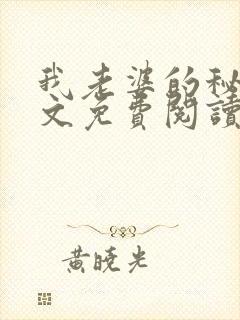 我老婆的秘
文免費閱讀
黃曉光